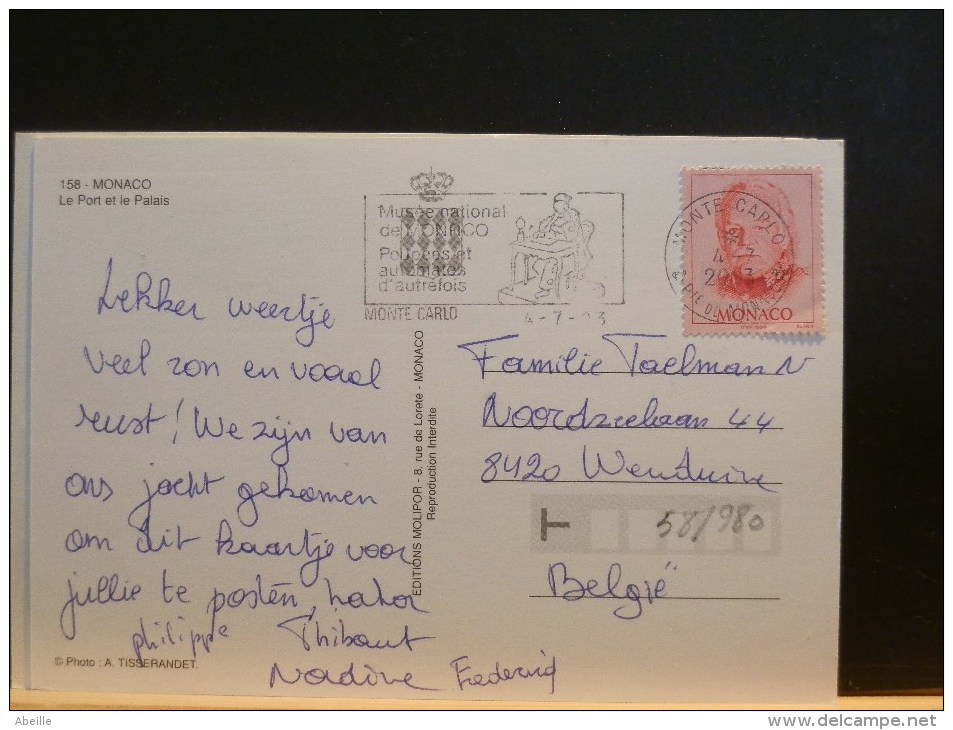 158 - MONACO
Le Port et le Palais
Musée national
de MONACO
Poupées et
automates
d'autrefois
MONTE CARLO 4-7-03
MONTE CARLO
4-7
MONACO
Lekker weertje
veel zon en vooral
rust! We zijn van
ons jacht gekomen
om dit kaartje voor
jullie te posten,
philippe Thibaut
Nadine
© Photo : A. TISSERANDET.
EDITIONS MOLIPOR - 8, rue de Lorete - MONACO
Reproduction Interdite
Familie Taelman N
Noordzeelaan 44
8420 Wenduine
T 58/980
België
Abeille
www.delcampe.net